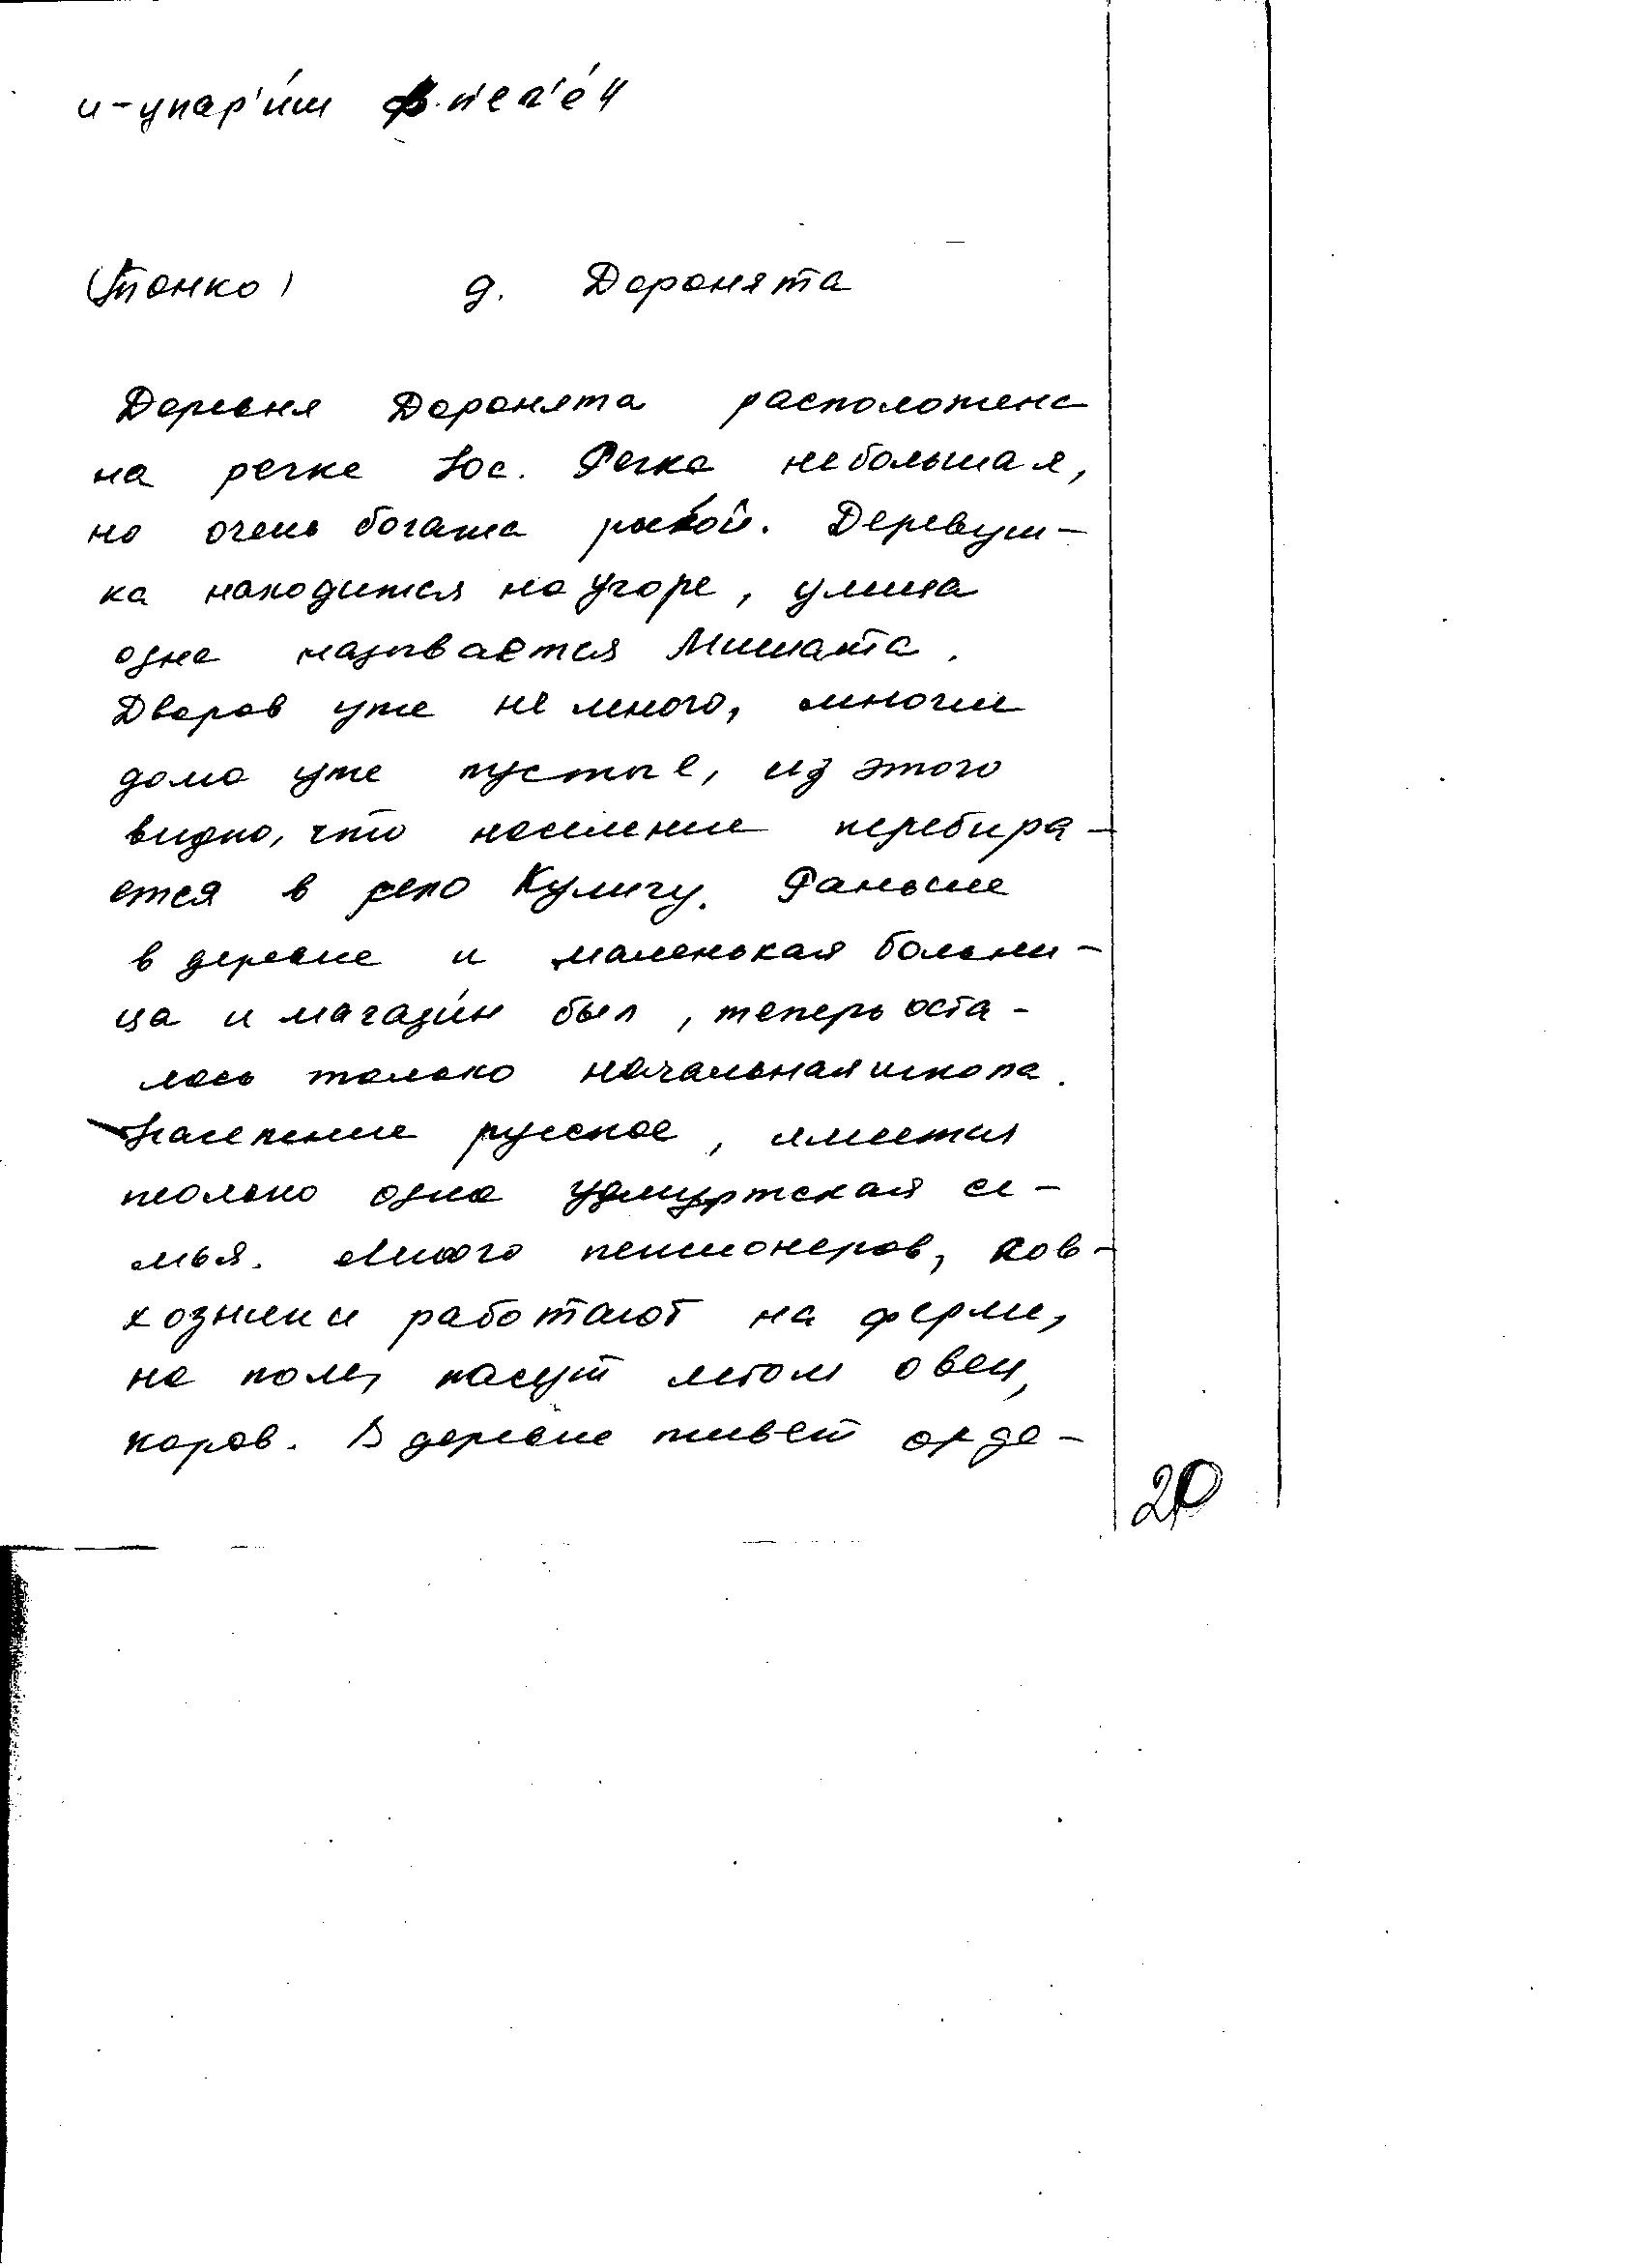 и-упар'и́ш ф.п'еч'е́й
(Тонко) д. Доронята
Деревня Доронята расположена
на речке Юс. Речка небольшая,
но очень богата рыбой. Деревуш-
ка находится на угоре, улица
одна называется Мишата.
Дворов уже не много, многие
дома уже пустые, из этого
видно, что население перебира-
ется в село Кулигу. Раньше
в деревне и маленькая больни-
ца и магази́н был, теперь оста-
лась только начальная школа.
Население русское, имеется
только одна удмуртская се-
мья. Много пенсионеров, сов-
хозники работают на ферме,
на поле, пасут летом овец,
коров. В деревне живет орде-
20